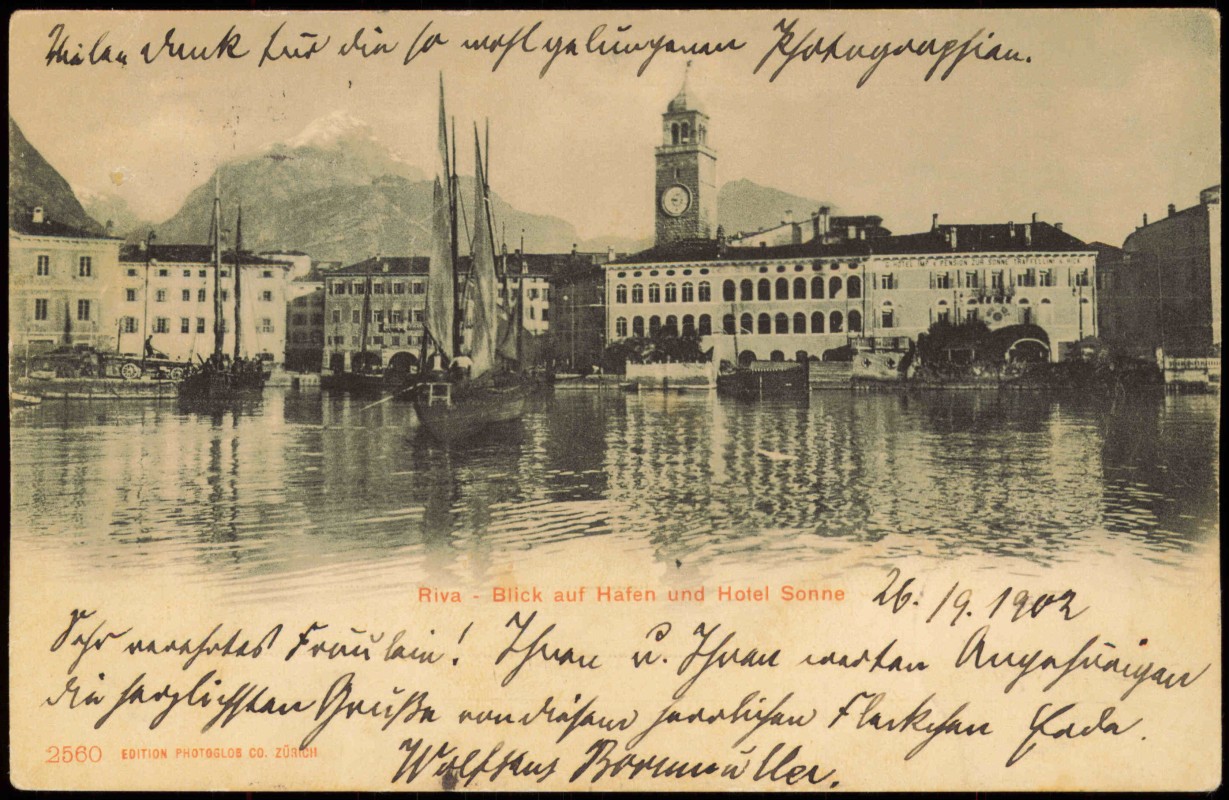 Vielen Dank für die so wohl gelungenen Photographien.
Riva - Blick auf Hafen und Hotel Sonne
26./9. 1902
Sehr verehrtes Fräulein! Ihnen u. Ihren werten Angehörigen
die herzlichsten Grüße von diesem herrlichen Fleckchen Erde.
2560 EDITION PHOTOGLOB CO. ZÜRICH
Bornmüller.